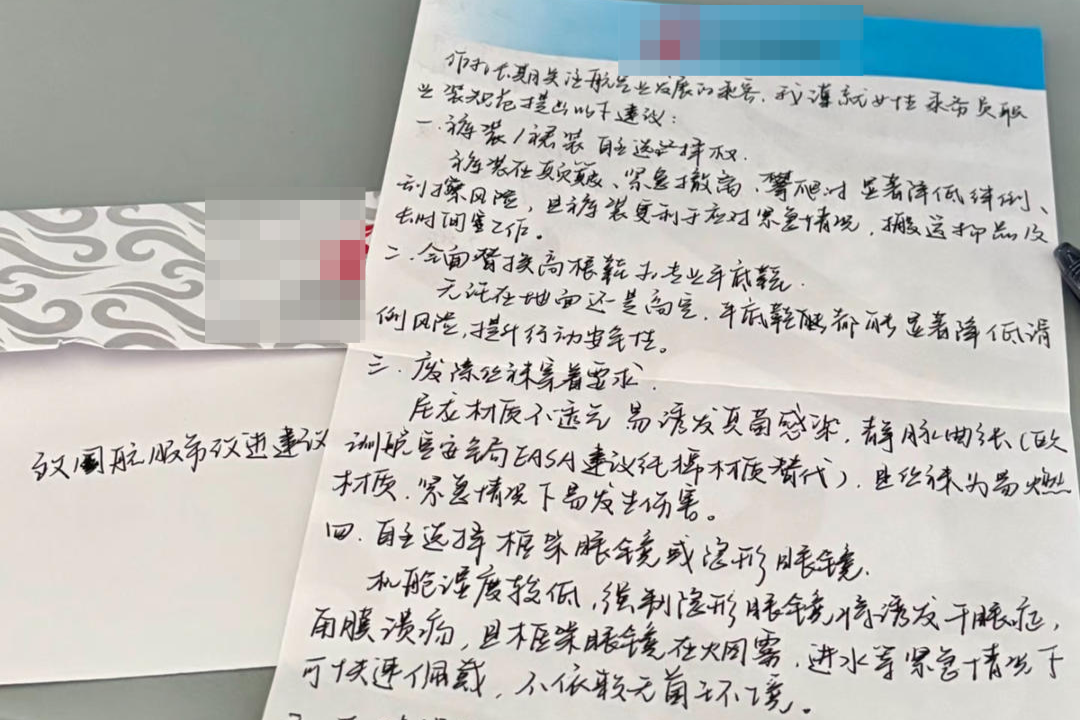 作为长期关注航空业发展的乘客，我谨就女性乘务员职
业装规范提出以下建议：
一．裤装/裙装自主选择权．
裤装在颠簸、紧急撤离、攀爬时显著降低绊倒、
刮擦风险，且裤装更利于应对紧急情况，搬运物品及
长时间工作。
二．全面替换高根鞋为专业平底鞋．
无论在地面还是高空，平底鞋都能显著降低滑
倒风险，提升行动安全性。
三．废除丝袜穿着要求．
尼龙材质不透气易诱发真菌感染，静脉曲张（欧
洲航空安全局EASA建议纯棉材质替代），且丝袜为易燃
材质．紧急情况下易发生伤害。
四．自主选择框架眼镜或隐形眼镜．
机舱湿度较低，强制隐形眼镜将诱发干眼症，
角膜溃疡，且框架眼镜在烟雾，进水等紧急情况下
可快速佩戴，不依赖无菌环境。
致国航服务改进建议